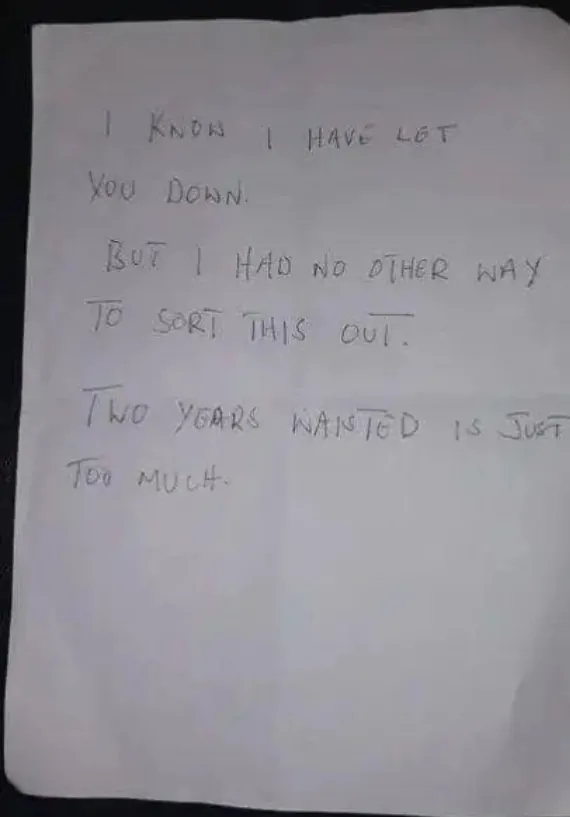 I KNOW I HAVE LET
YOU DOWN.
BUT I HAD NO OTHER WAY
TO SORT THIS OUT.
TWO YEARS WAISTED IS JUST
TOO MUCH.